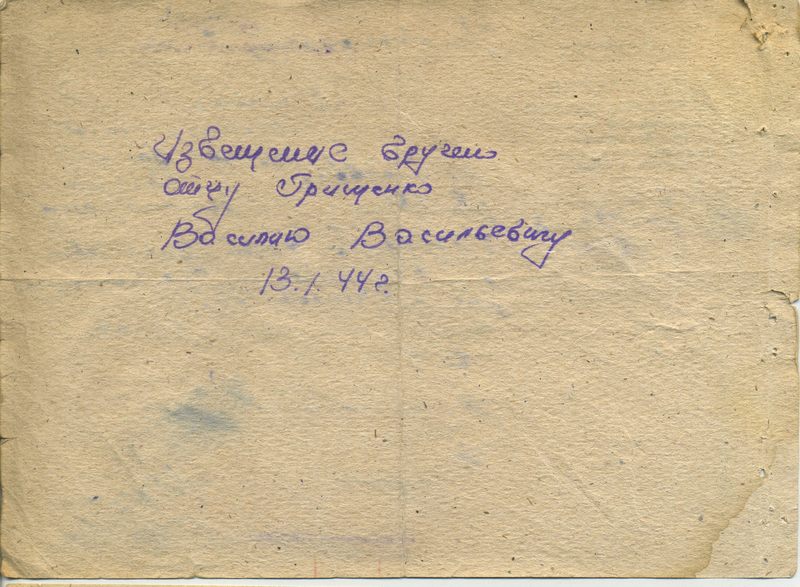 Извещение вручено
отцу Грищенко
Василию Васильевичу
13.1.44 г.